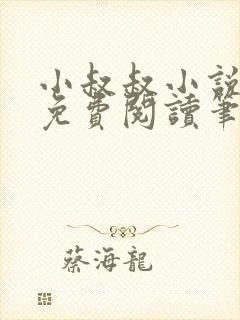 小叔叔小說
免費閱讀筆
蔡海龍